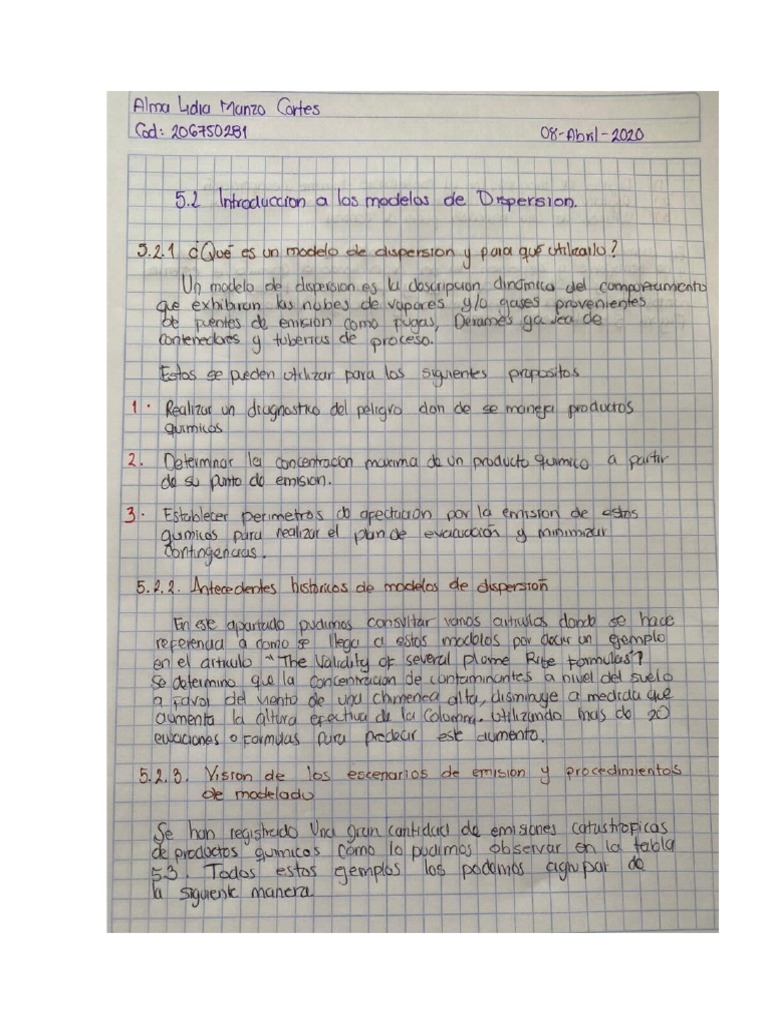 Alma Lidia Manzo Cortes
Cod: 206750281 08-Abril-2020
5.2 Introduccion a los modelos de Dispersion.
5.2.1 ¿Qué es un modelo de dispersion y para que utilizarlo?
Un modelo de dispersion es la descripcion dinámica del comportamiento
que exhibiran las nubes de vapores y/o gases provenientes
de fuentes de emision como fugas, Derames ya sea de
contenedores y tuberias de proceso.
Estos se pueden utilizar para los siguientes propositos
1. Realizar un diagnostico del peligro don de se maneja productos
quimicos
2. Determinar la concentracion maxima de un producto quimico a partir
de su punto de emision.
3. Establecer perimetros de afectación por la emision de estos
quimicos para realizar el plan de evacuacción y minimizar
contingencias.
5.2.2. Antecedentes historicos de modelos de dispersion
En este apartado pudimos consultar varios articulos donde se hace
referencia a como se llega a estos modelos por decir un ejemplo
en el articulo "The Validity of several plome Rise formulas"
Se determino que la concentracion de contaminantes a nivel del suelo
a favor del viento de una chimenea alta, disminuye a medida que
aumenta la altura efectiva de la Columna. Utilizando mas de 20
ecuaciones o formulas para predecir este aumento.
5.2.3. Vision de los escenarios de emision y procedimientos
de modelado
Se han registrado Una gran cantidad de emisiones catastroficas
de productos quimicos como lo pudimos observar en la tabla
5.3. Todos estos ejemplos los podemos agrupar de
la siguiente manera.